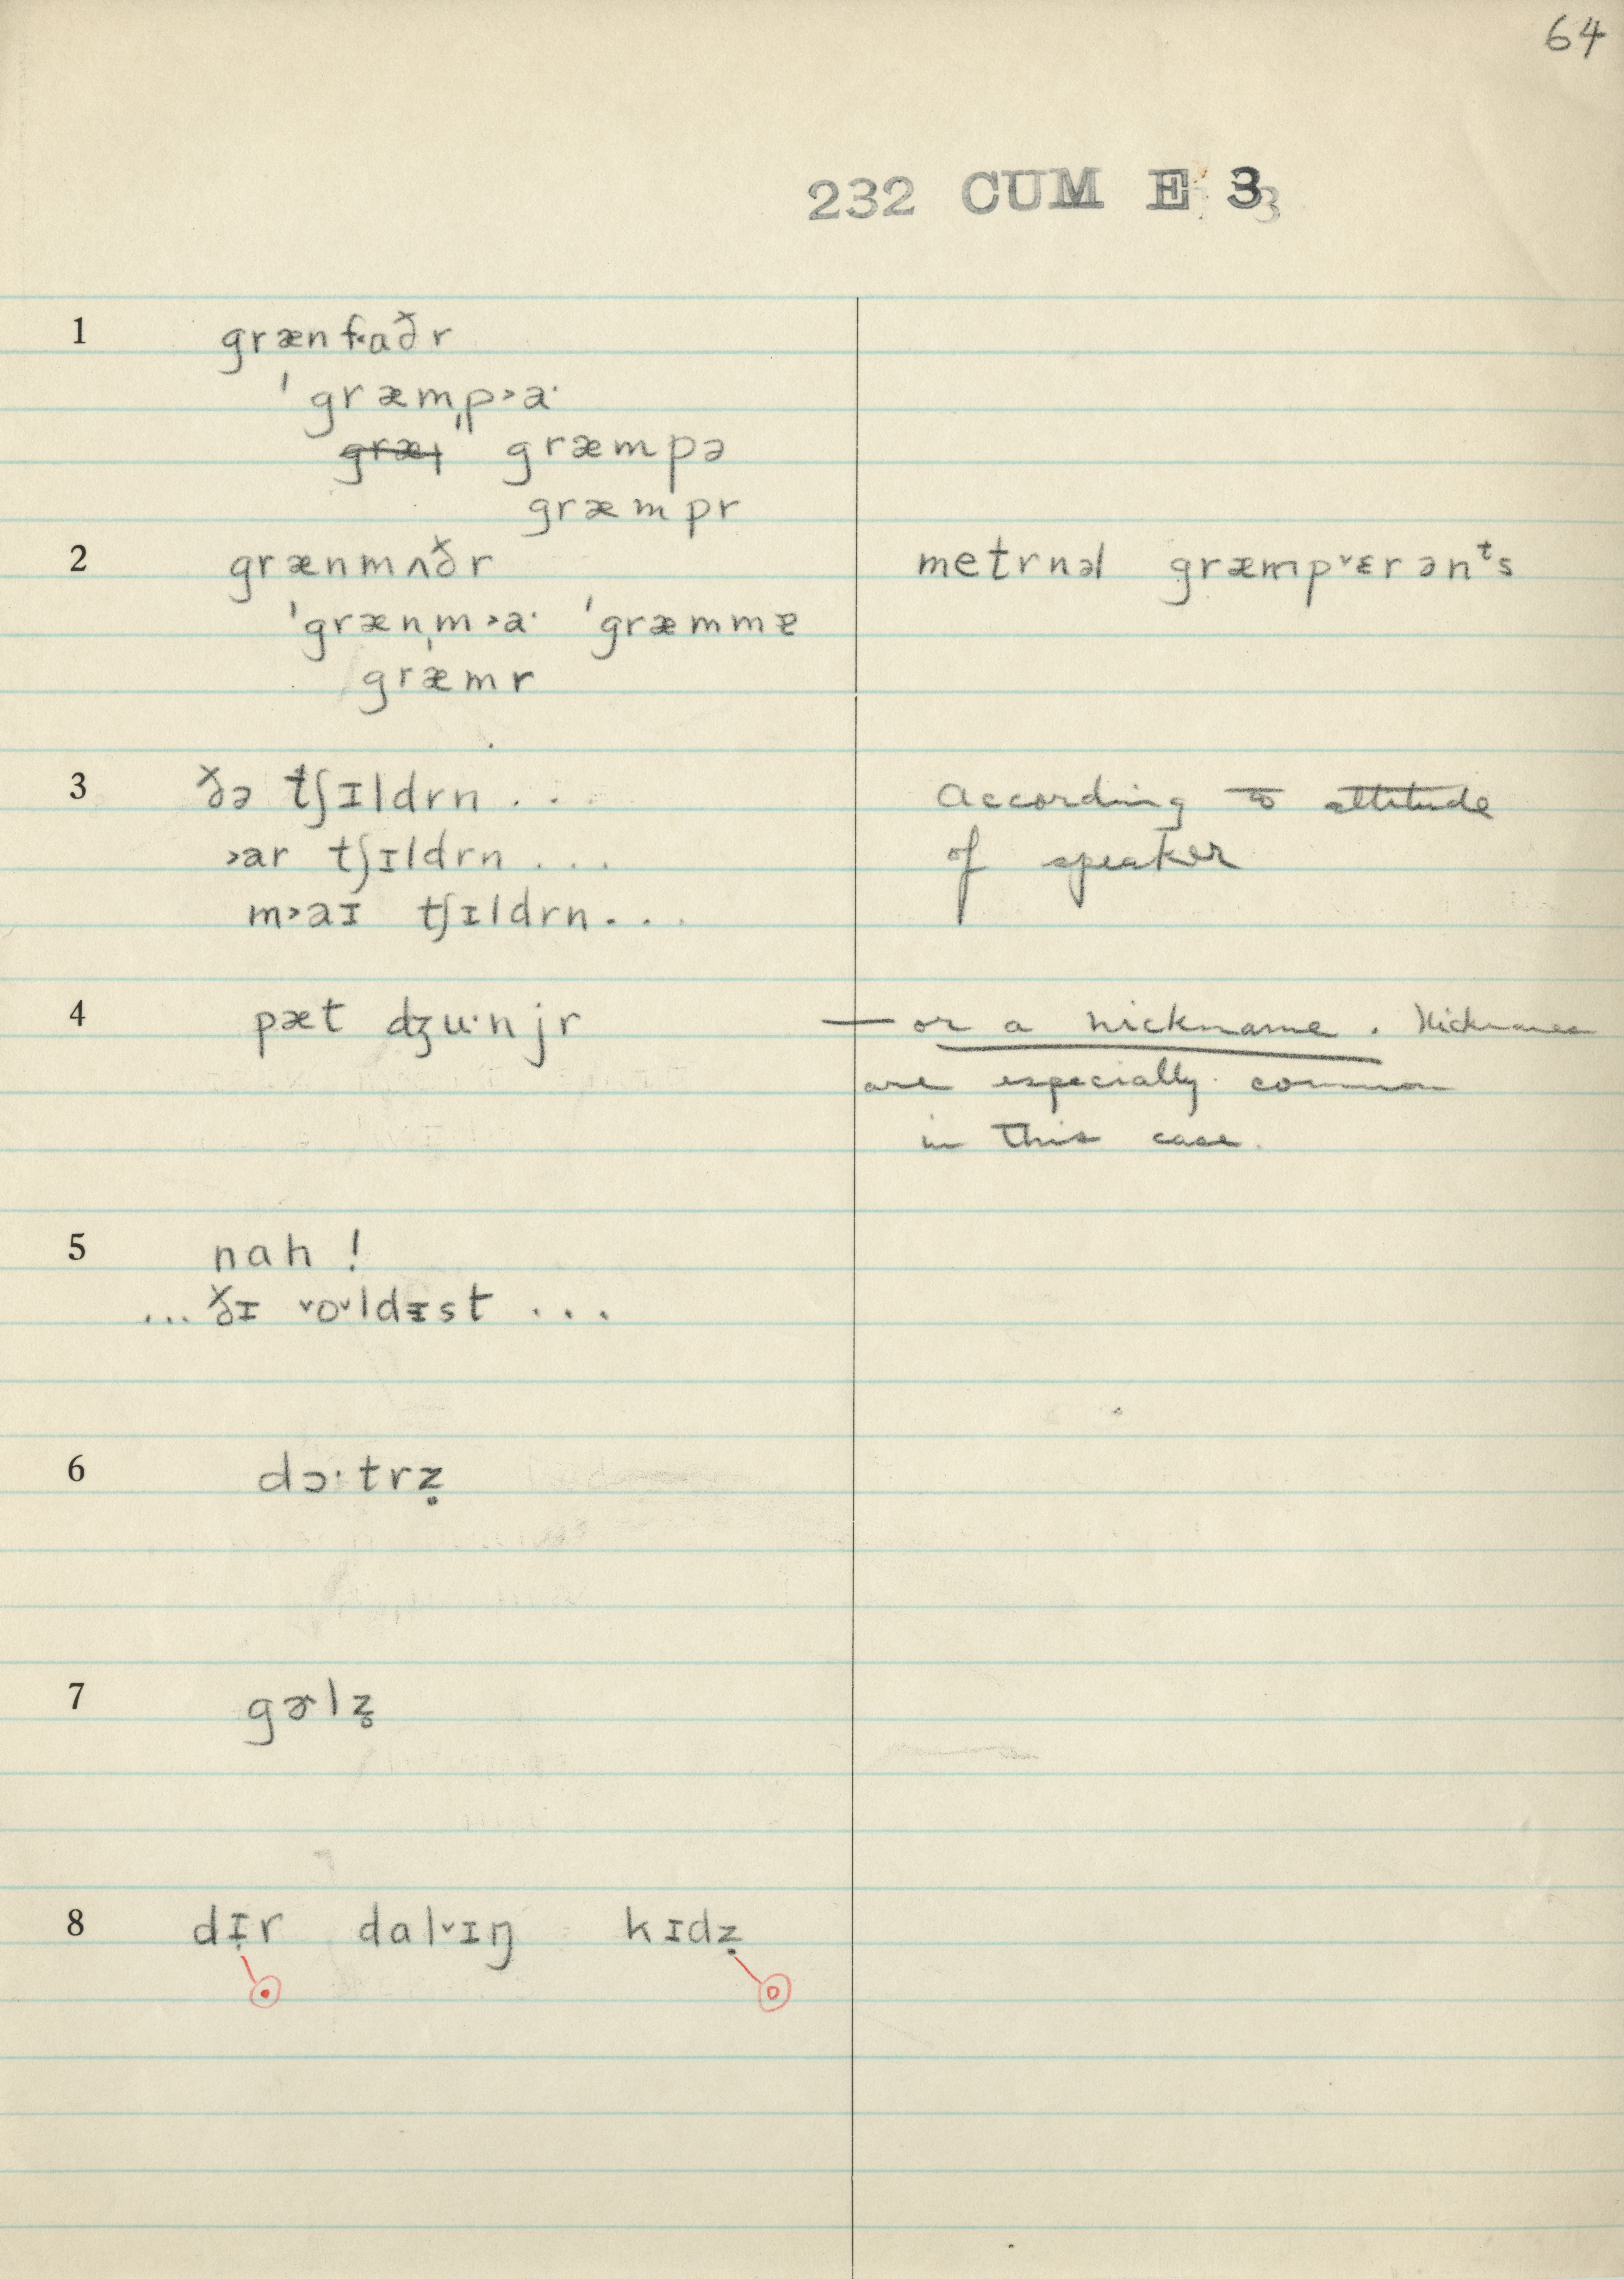 64
232 CUM E 3
1 grænf˂aðr
ˈgræmˌp˃aˑ
græmpə
græmpr
2 grænmʌðr
ˈgrænˌm˃aˑ ˈgræmmɐ
græmr
metrnəl græmp˅ɛrənᵗs
3 ðə tʃɪldrn . . .
˃ar tʃɪldrn . . .
m˃aɪ tʃɪldrn . . .
According to attitude
of speaker
4 pæt dʒuˑnjr
— or a nickname. Nicknames
are especially common
in this case.
5 nah !
... ðɪ ˅o˅ldɪst . . .
6 dɔˑtrẓ
7 gɚlz̥
8 dɪ̣r dal˅ɪŋ kɪdẓ